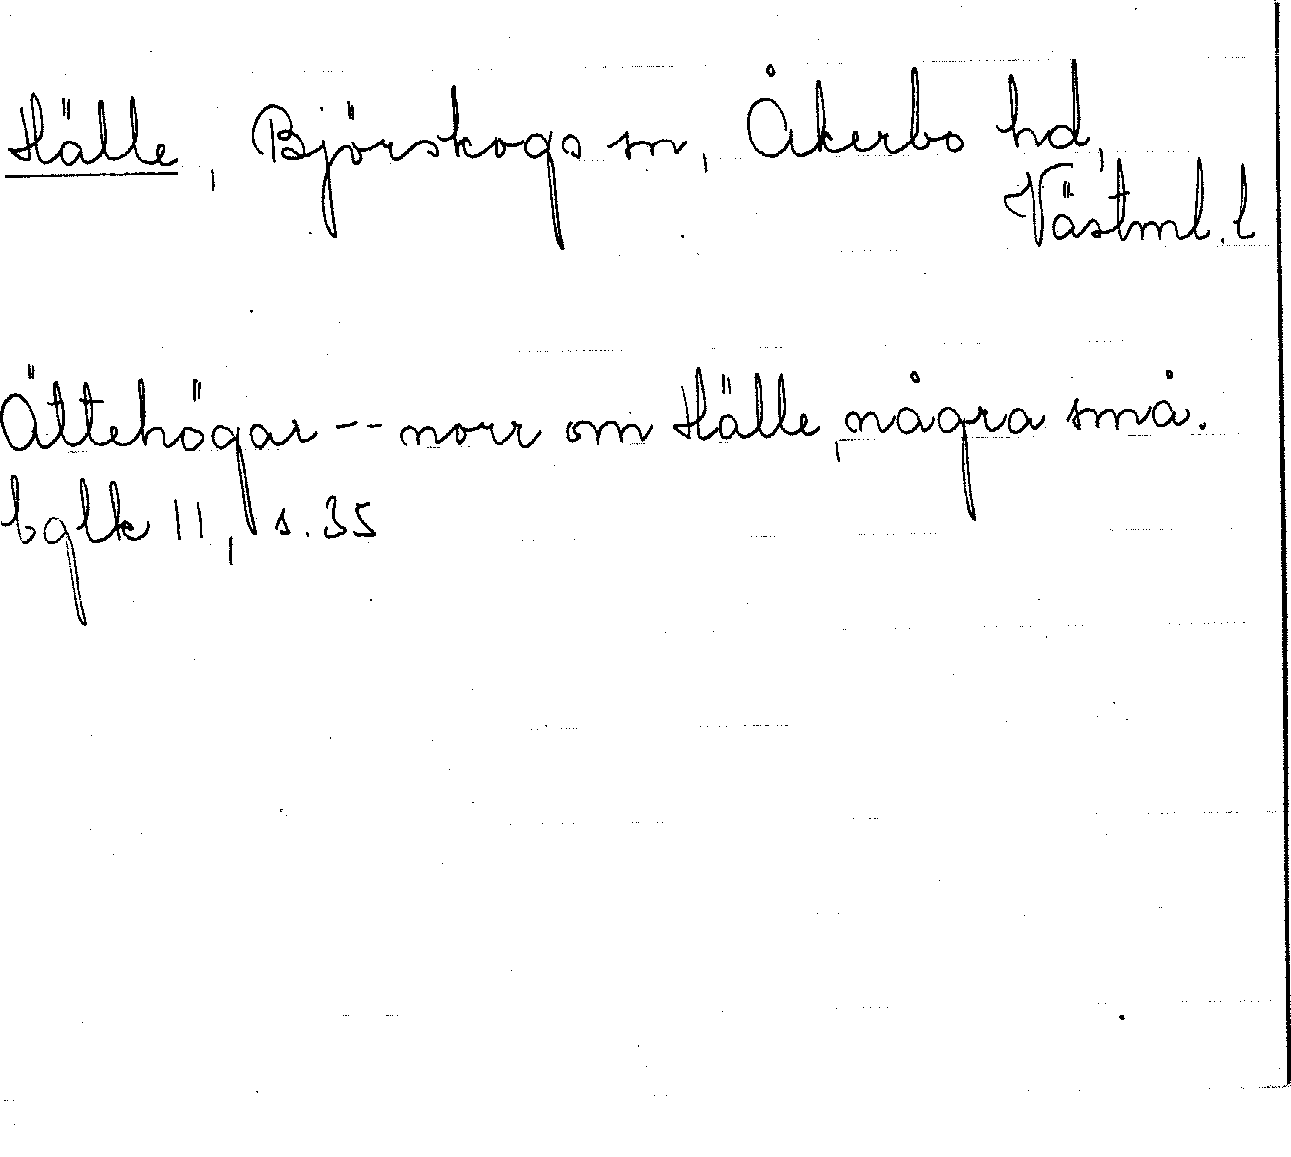 Hälle, Björskogs sn, Åkerbo hd,
Västml. l
Ättehögar -- norr om Hälle, några små.
bglk 11, s. 35